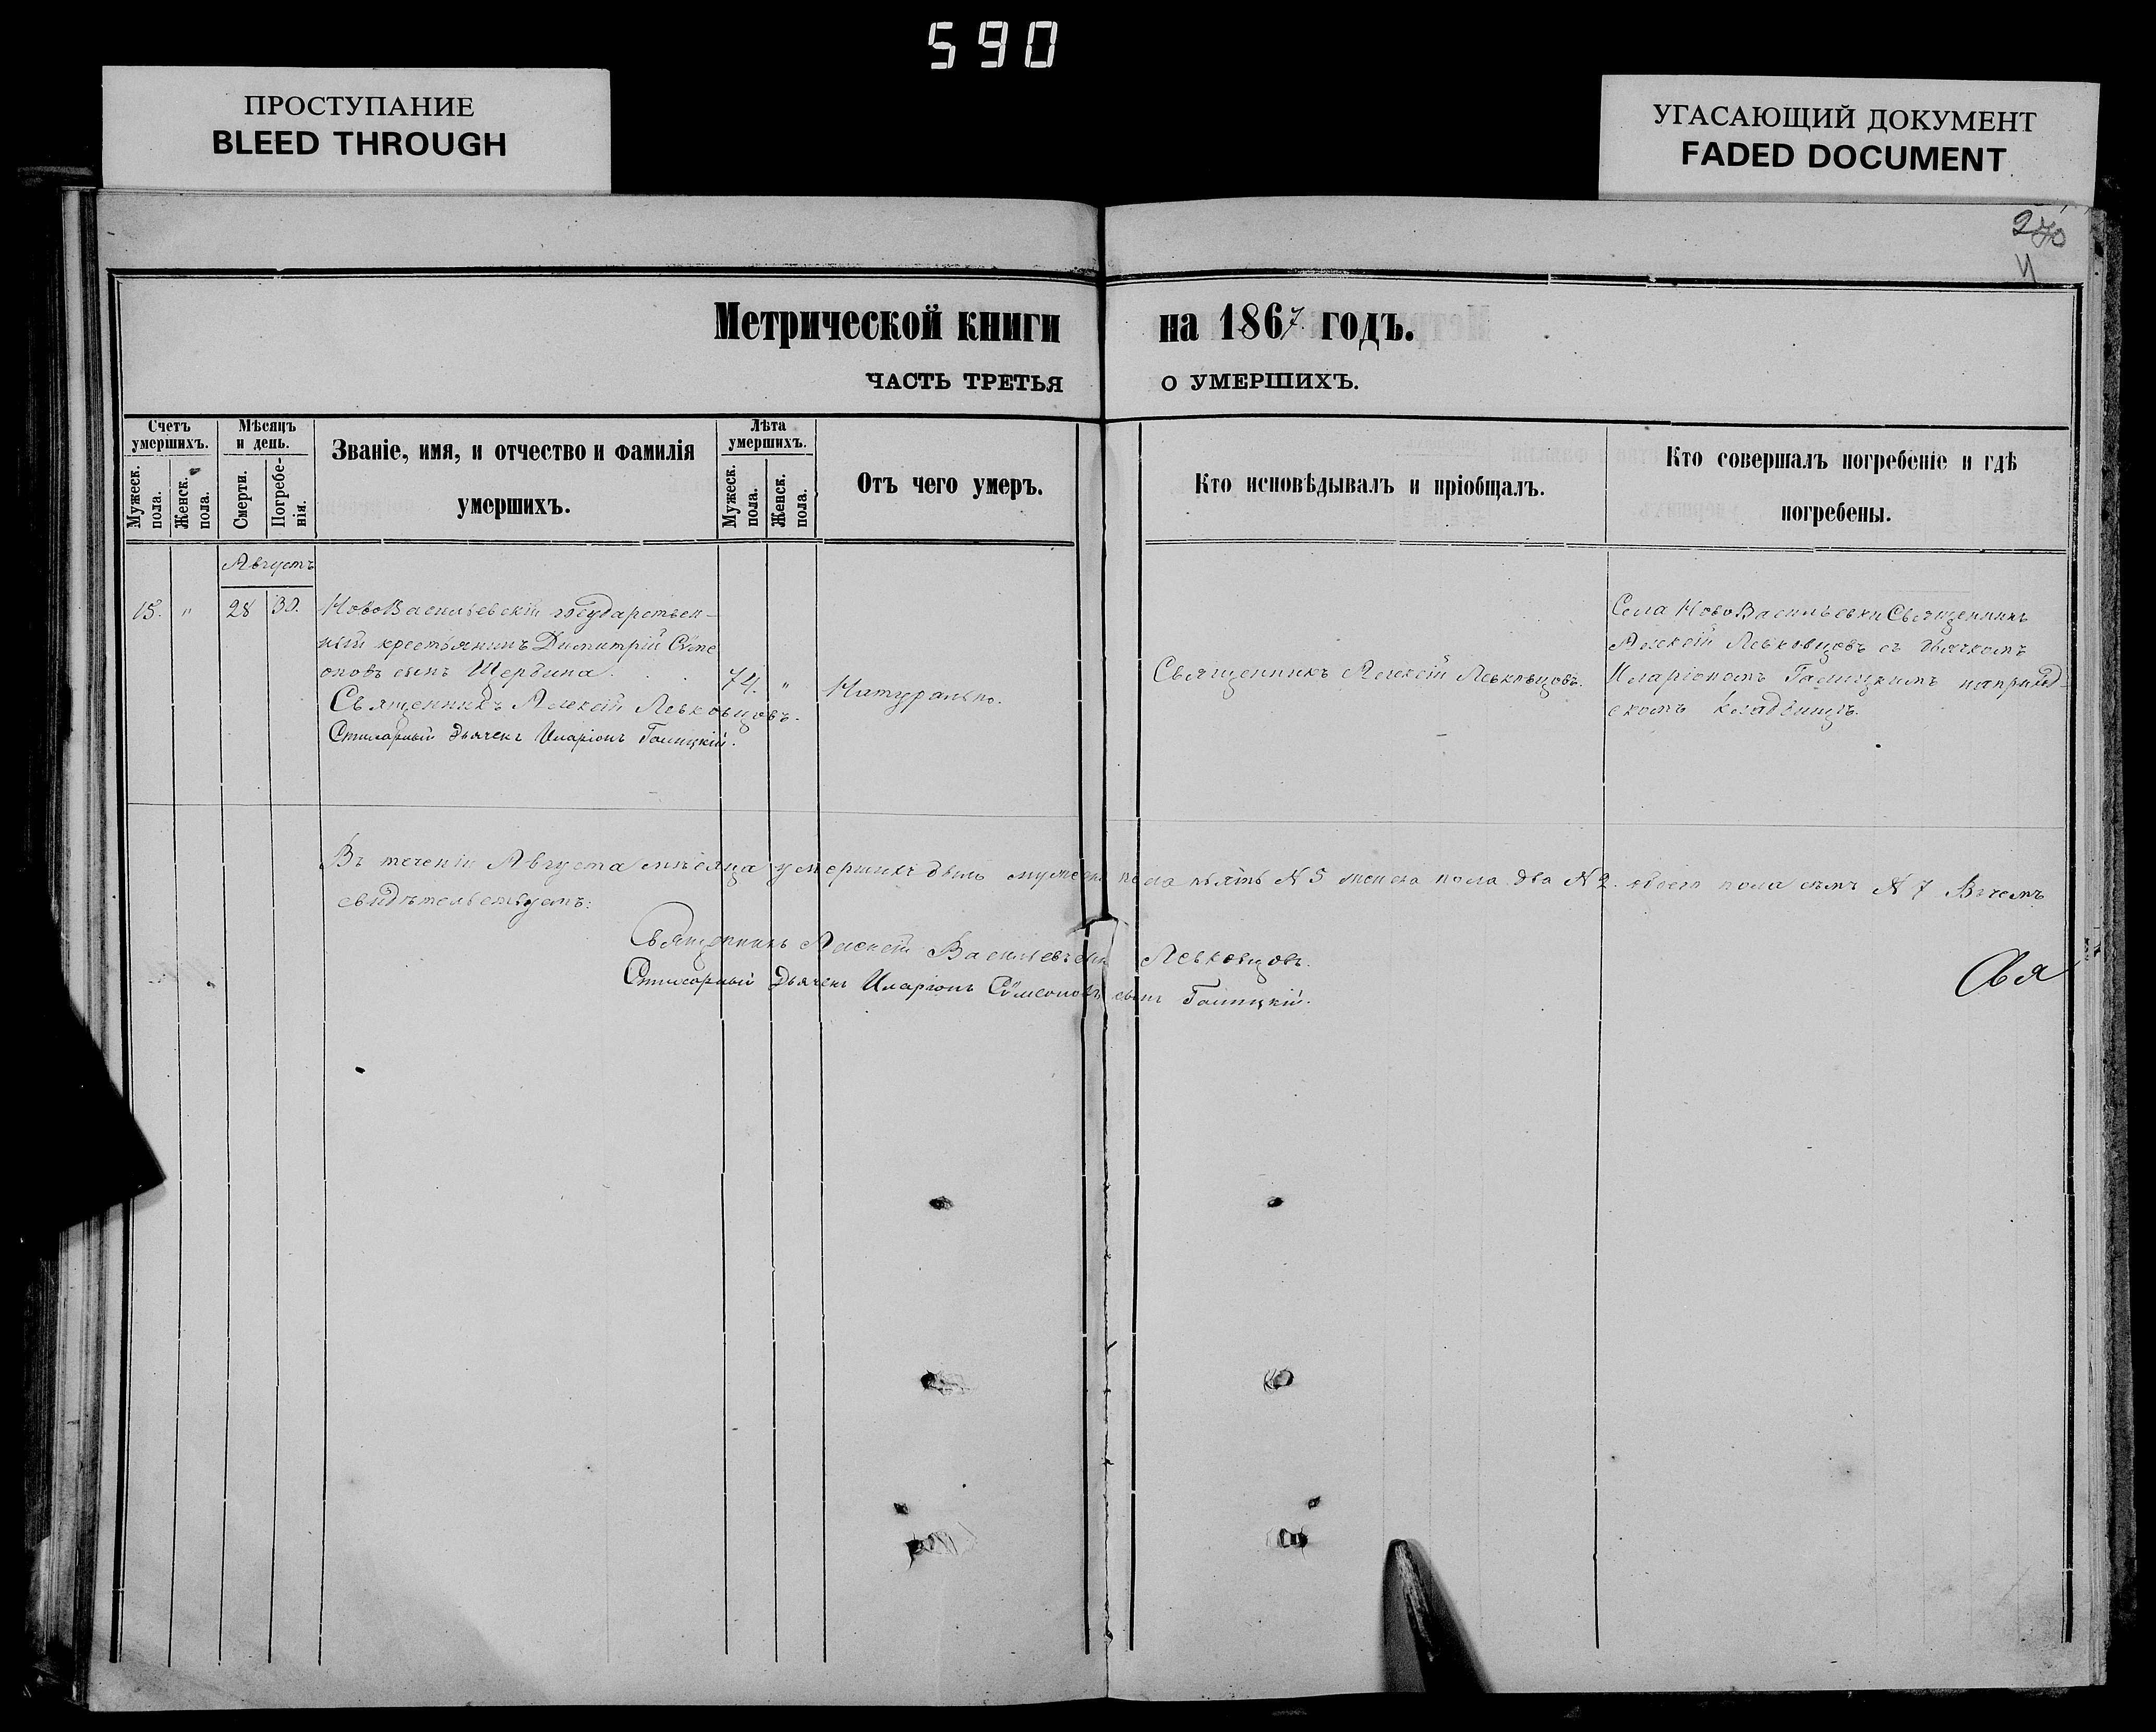 590
ПРОСТУПАНИЕ
BLEED THROUGH
УГАСАЮЩИЙ ДОКУМЕНТ
FADED DOCUMENT
Метрической книги на 1867 годъ.
ЧАСТЬ ТРЕТЬЯ О УМЕРШИХЪ.
Счетъ умершихъ.
Мужеск. пола.
Женск. пола.
Мѣсяцъ и день.
Смерти.
Погребенія.
Званіе, имя, и отчество и фамилія
умершихъ.
Лѣта умершихъ.
Мужеск. пола.
Женск. пола.
Отъ чего умеръ.
Кто исповѣдывалъ и пріобщалъ.
Кто совершалъ погребеніе и гдѣ
погребены.
Августъ
15. " 28 30.
НовоВасильевскій государствен-
ный крестьянинъ Димитрій Сѵме
оновъ сынъ Щербина.
Священникъ Алексій Левковцовъ.
Стихарный Дьячекъ Иларіонъ Галицкій.
74. "
Натурально.
Священникъ Алексій Левковцовъ.
Села НовоВасильевки Священникъ
Алексій Левковцовъ съ дьячкомъ
Иларіономъ Галицкимъ на приход-
скомъ кладбищѣ.
Въ теченіи Августа мѣсяца умершихъ было мужеска пола пять N 5 женска пола два N 2. обоего пола семь N 7 Въ чемъ
свидѣтельствуемъ:
Священникъ Алексій Васильевъ сынъ Левковцовъ.
Стихарный Дьячекъ Иларіонъ Сѵмеоновъ сынъ Галицкій.
Свя